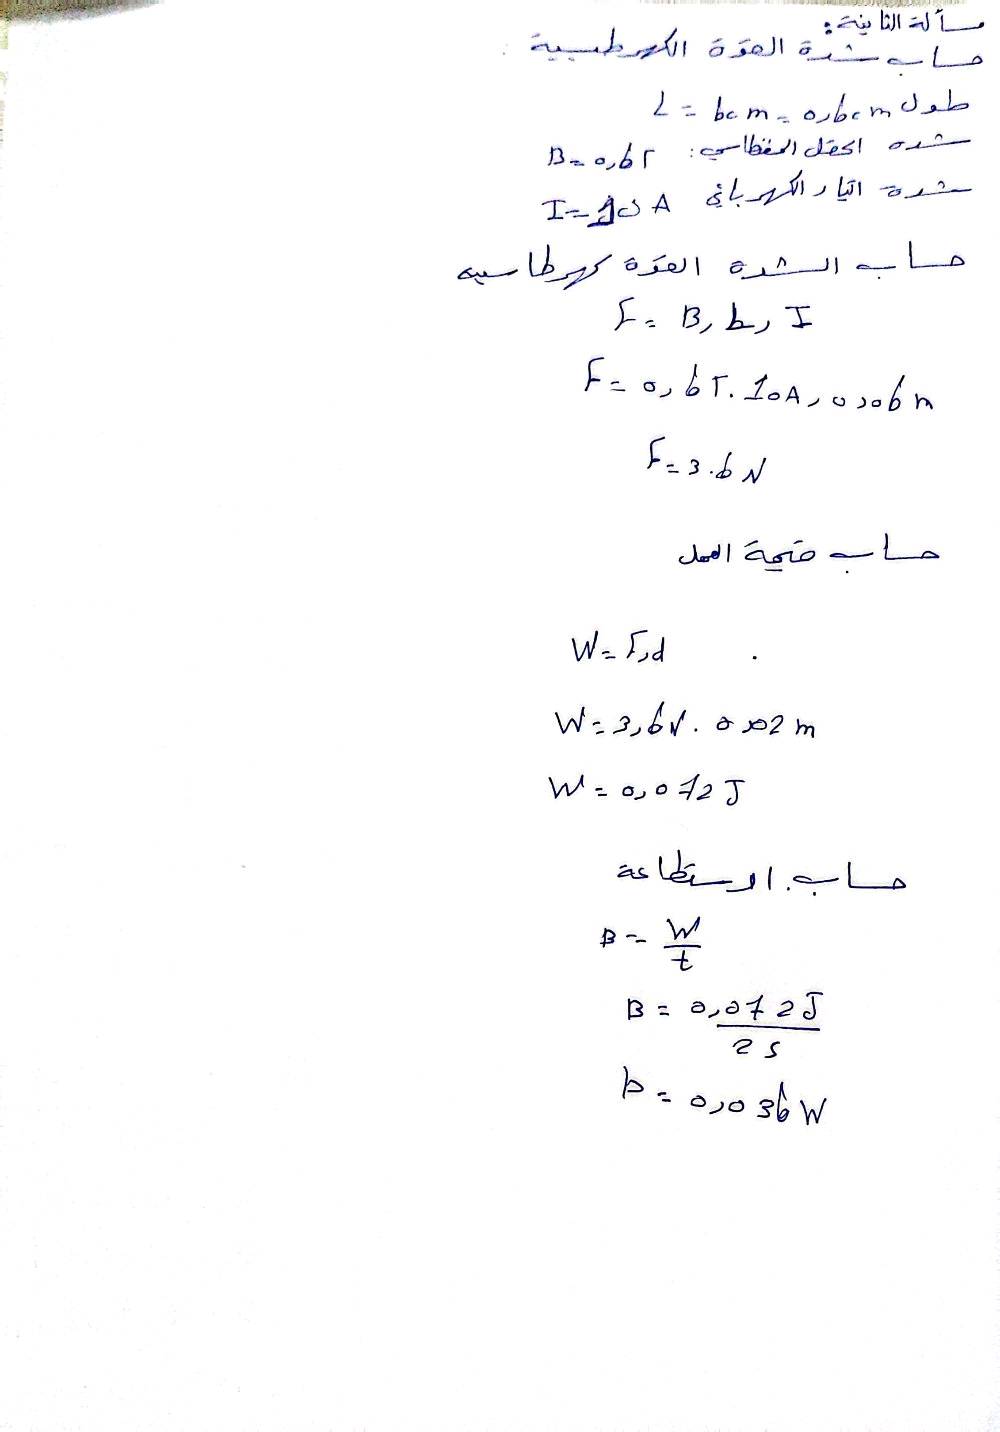 مسألة الثانية:
حساب شدة القوة الكهرطيسية:
طول L = 6cm = 0,06cm
شدة الحقل المغطاسي: B = 0,6T
شدة التيار الكهربائي I = 10 A
حساب الشدة القوة كهرطاسيية
F = B, L, I
F = 0,6T. 10A, 0,06m
F = 3.6N
حساب قيمة العمل
W = F,d
W = 3,6N. 0,02m
W = 0,072J
حساب الاستطاعة
B = W/t
B = 0,072J/2s
P = 0,036W